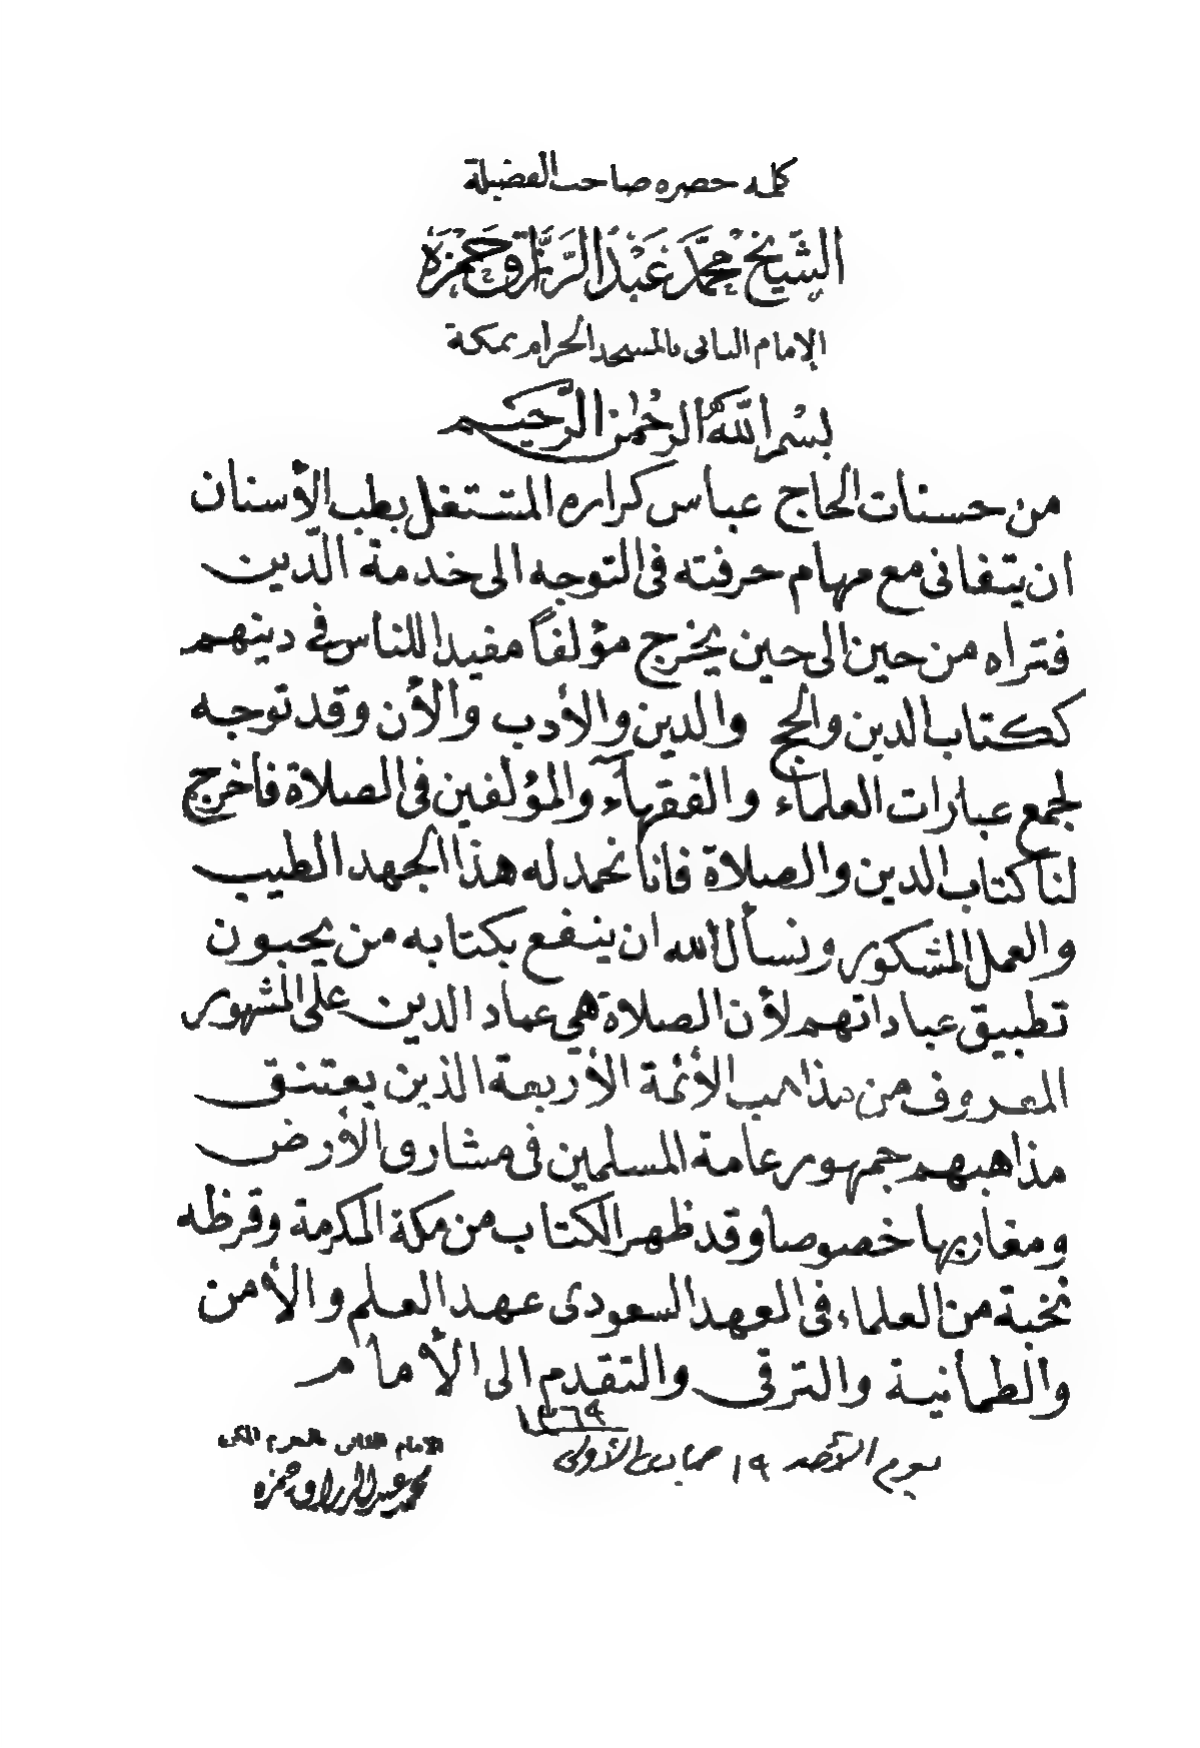 كلمة حضرة صاحب الفضيلة
الشَّيخ مُحمَّد عَبْد الرَّزاق حَمْزَة
الإمام الثاني بالمسجد الحرام بمكة
بسم الله الرحمن الرحيم
من حسنات الحاج عباس كراره المشتغل بطب الأسنان
ان يتفانى مع مهام حرفته فى التوجه الى خدمة الدّين
فتراه من حين الى حين يخرج مؤلفاً مفيدا للناس فى دينهم
ككتاب الدين والحج والدين والأدب والأن وقد توجه
لجمع عبارات العلماء والفقهاء والمؤلفين فى الصلاة فأخرج
لنا كتاب الدين والصلاة فانا نحمد له هذا الجهد الطيب
والعمل المشكور ونسأل الله ان ينفع بكتابه من يحبون
تطبيق عباداتهم لأن الصلاة هى عماد الدين على المشهور
المعروف من مذاهب الأئمة الأربعة الذين يعتنق
مذاهبهم جمهور عامة المسلمين فى مشارق الأرض
ومغاربها خصوصا وقد ظهر الكتاب من مكة المكرمة وقرظه
نخبة من العلماء فى العهد السعودى عهد العلم والأمن
والطمأنينة والترقى والتقدم الى الأمام
١٣٦٩
يوم الأحد ١٩ جمادى الأولى
الامام الثانى بالحرم المكى
محمد عبد الرزاق حمزه